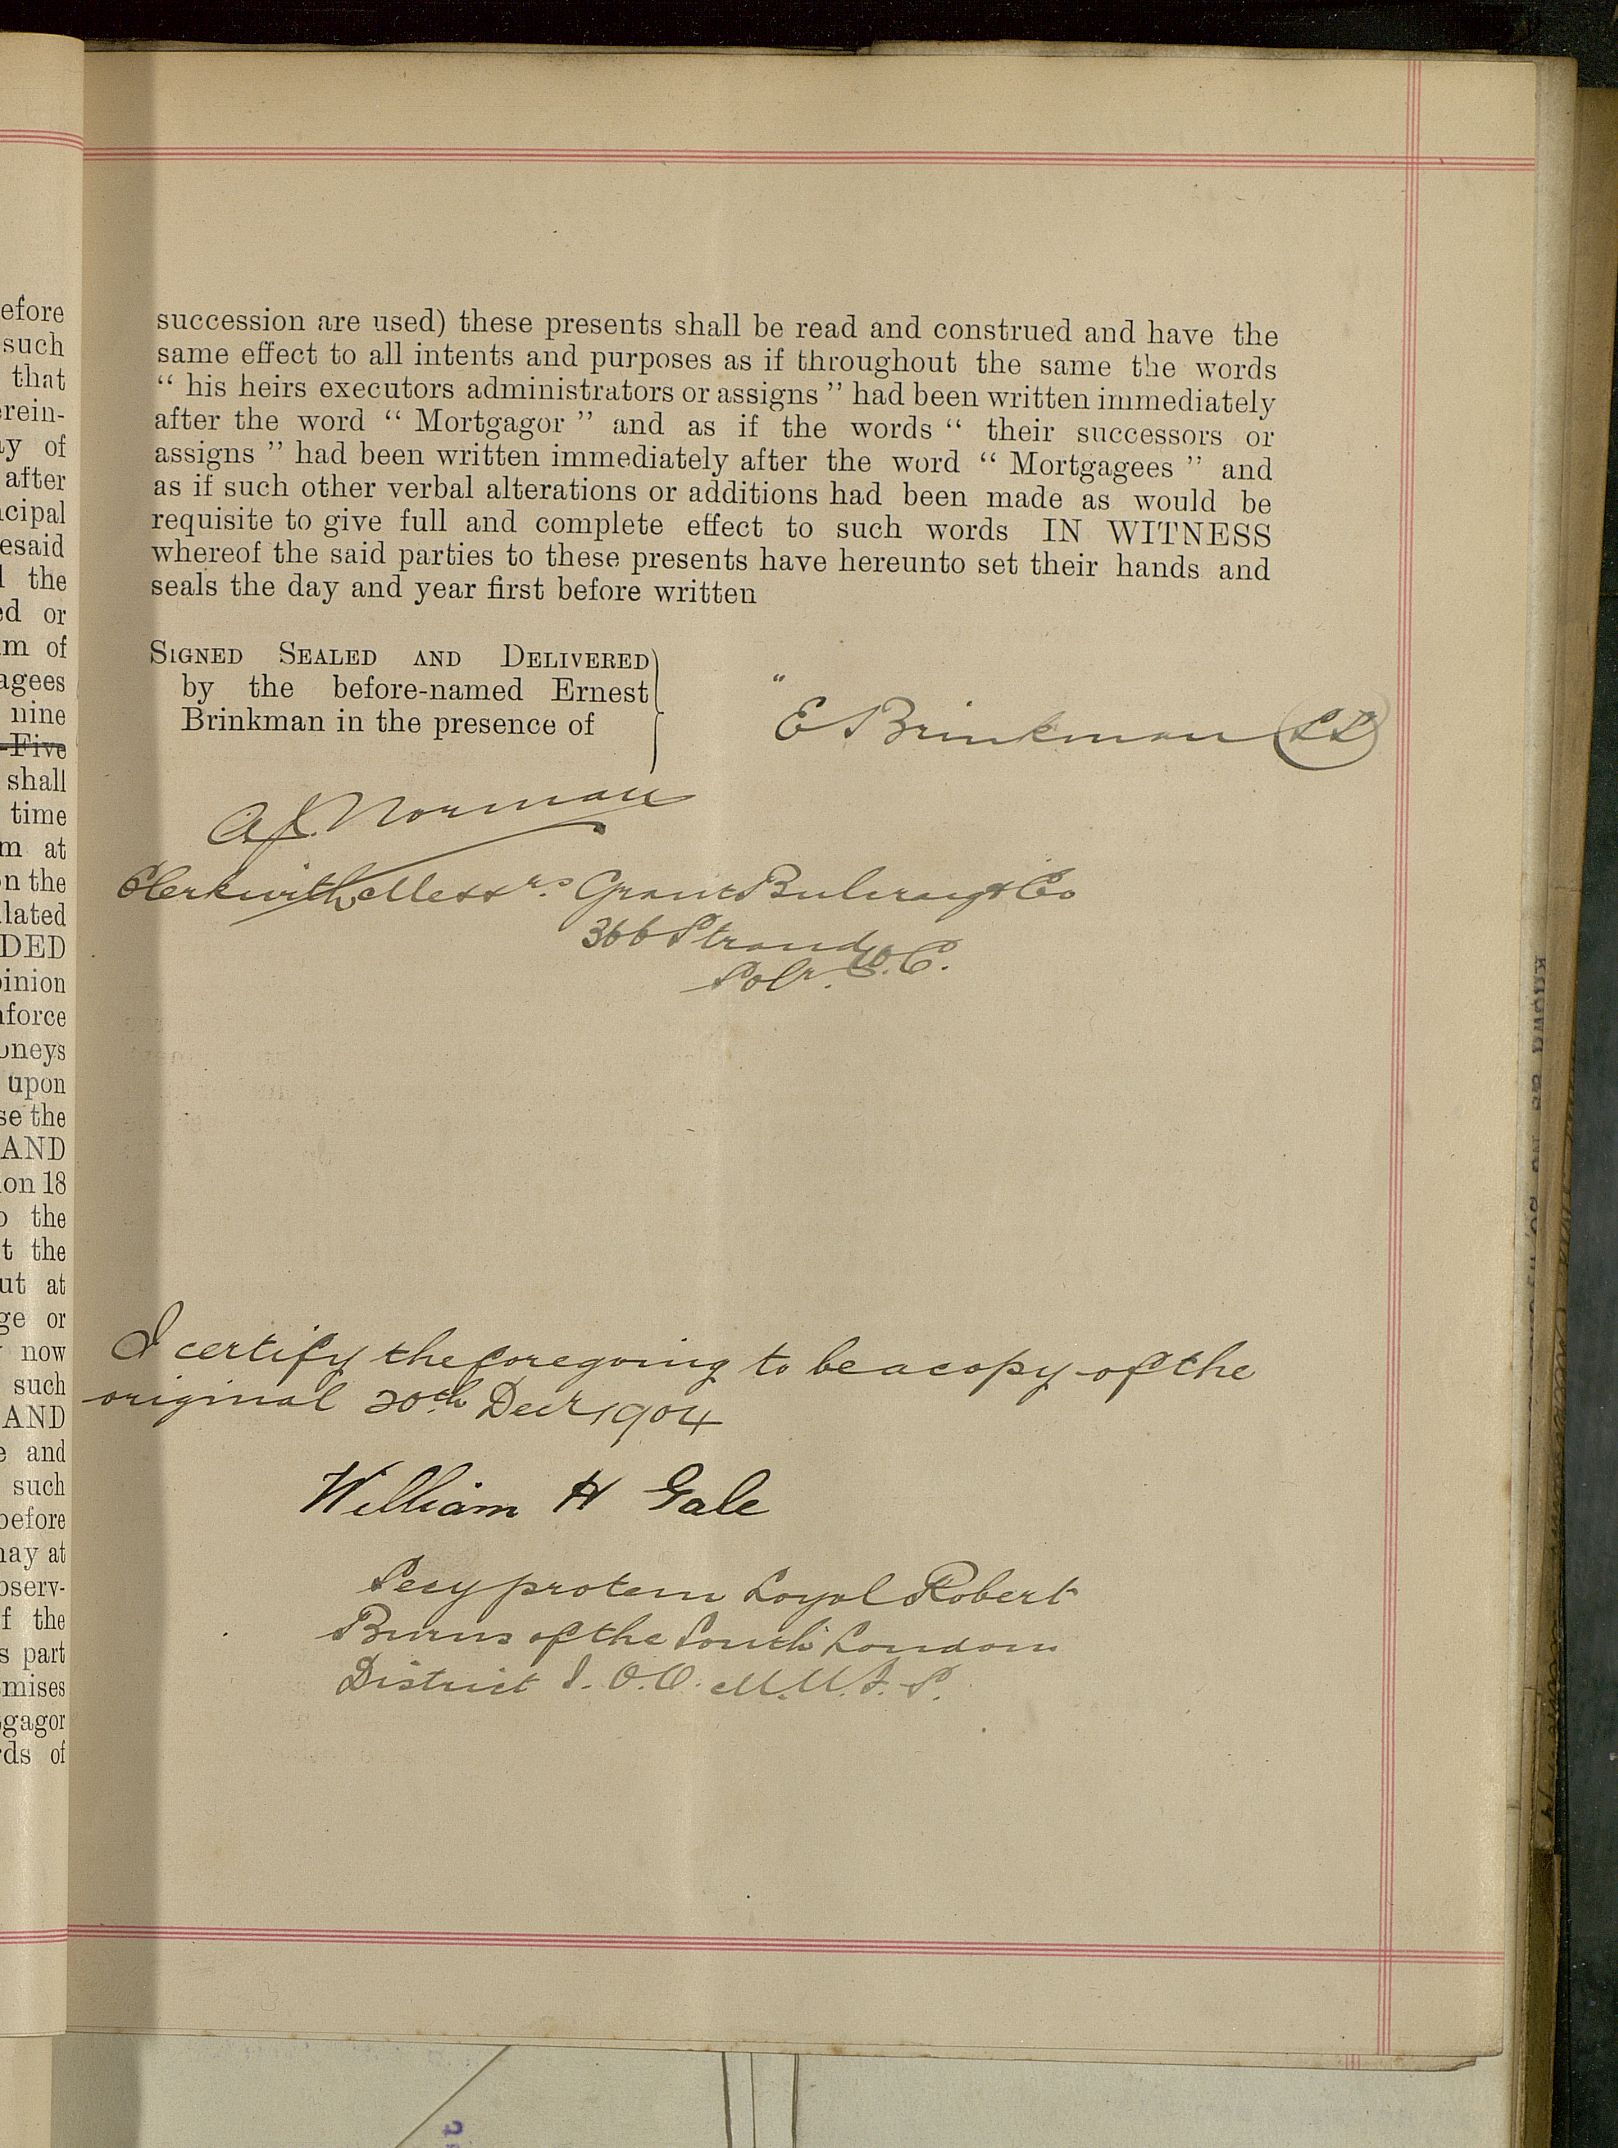 succession are used) these presents shall be read and construed and have the
same effect to all intents and purposes as if throughout the same the words
“ his heirs executors administrators or assigns ” had been written immediately
after the word “ Mortgagor ” and as if the words “ their successors or
assigns ” had been written immediately after the word “ Mortgagees ” and
as if such other verbal alterations or additions had been made as would be
requisite to give full and complete effect to such words IN WITNESS
whereof the said parties to these presents have hereunto set their hands and
seals the day and year first before written
SIGNED SEALED AND DELIVERED
by the before-named Ernest
Brinkman in the presence of
E Brinkman LS
Norman
Clerk with Messrs. Grant Bulcraig & Co
366 Strand W.C.
Solr.
I certify the foregoing to be a copy of the
original 20th Decr 1904
William H Gale
Secy protem Loyal Robert
Burns of the South London
District I.O.O.M.U.F.S.
efore
such
that
erein-
ay of
after
ncipal
esaid
the
ed or
m of
agees
nine
-Five
shall
time
m at
on the
lated
DED
pinion
nforce
oneys
upon
se the
AND
ion 18
o the
t the
ut at
ge or
now
such
AND
e and
such
before
may at
bserv-
f the
s part
mises
gagor
rds of